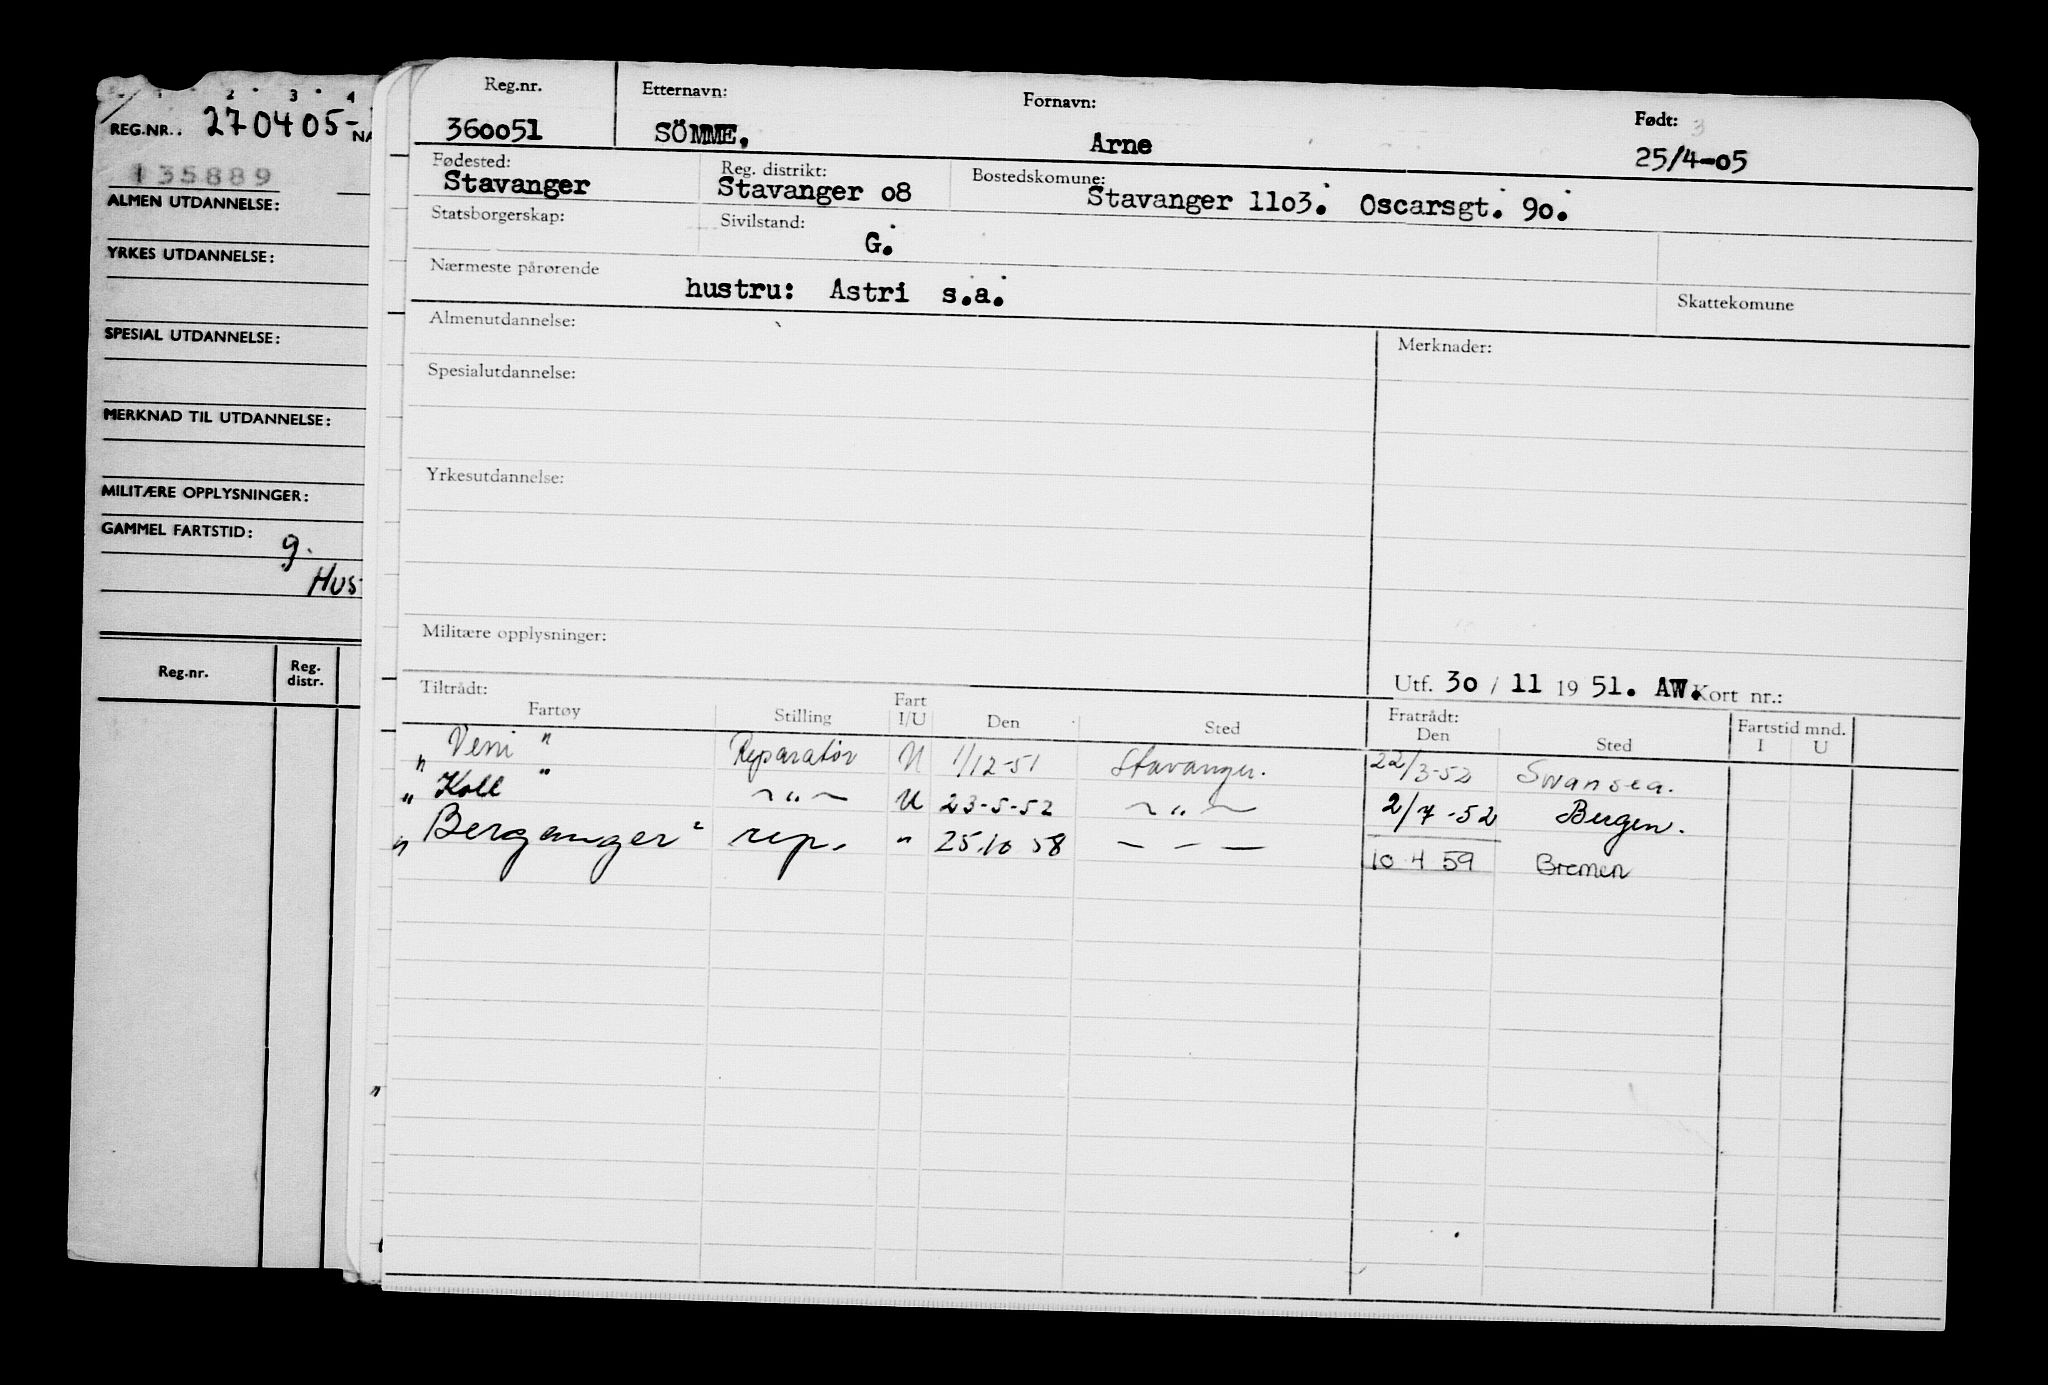 1 2 3 4
REG.NR.. 270405-
NA
135889
ALMEN UTDANNELSE:
YRKES UTDANNELSE:
SPESIAL UTDANNELSE:
MERKNAD TIL UTDANNELSE:
MILITÆRE OPPLYSNINGER:
GAMMEL FARTSTID:
g.
Hus
Reg.nr. Reg. distr.
Reg.nr. Etternavn: Fornavn: Født:
360051 SÖMME. Arne 25/4-05
Fødested: Reg. distrikt: Bostedskomune:
Stavanger Stavanger o8 Stavanger 11o3. Oscarsgt. 9o.
Statsborgerskap: Sivilstand:
G.
Nærmeste pårørende
hustru: Astri s.a.
Skattekomune
Almenutdannelse: Merknader:
Spesialutdannelse:
Yrkesutdannelse:
Militære opplysninger:
Utf. 3o / 11 19 51. AW. Kort nr.:
Tiltrådt: Fratrådt: Fartstid mnd.
Fartøy Stilling Fart I/U Den Sted Den Sted I U
" Veni " Reparatør U 1/12-51 Stavanger. 22/3-52 Swansea.
" Koll " ~"~ U 23-5-52 ~"~ 2/7-52 Bergen.
" Berganger " rep. " 25.10 58 — - — 10 4 59 Bremen